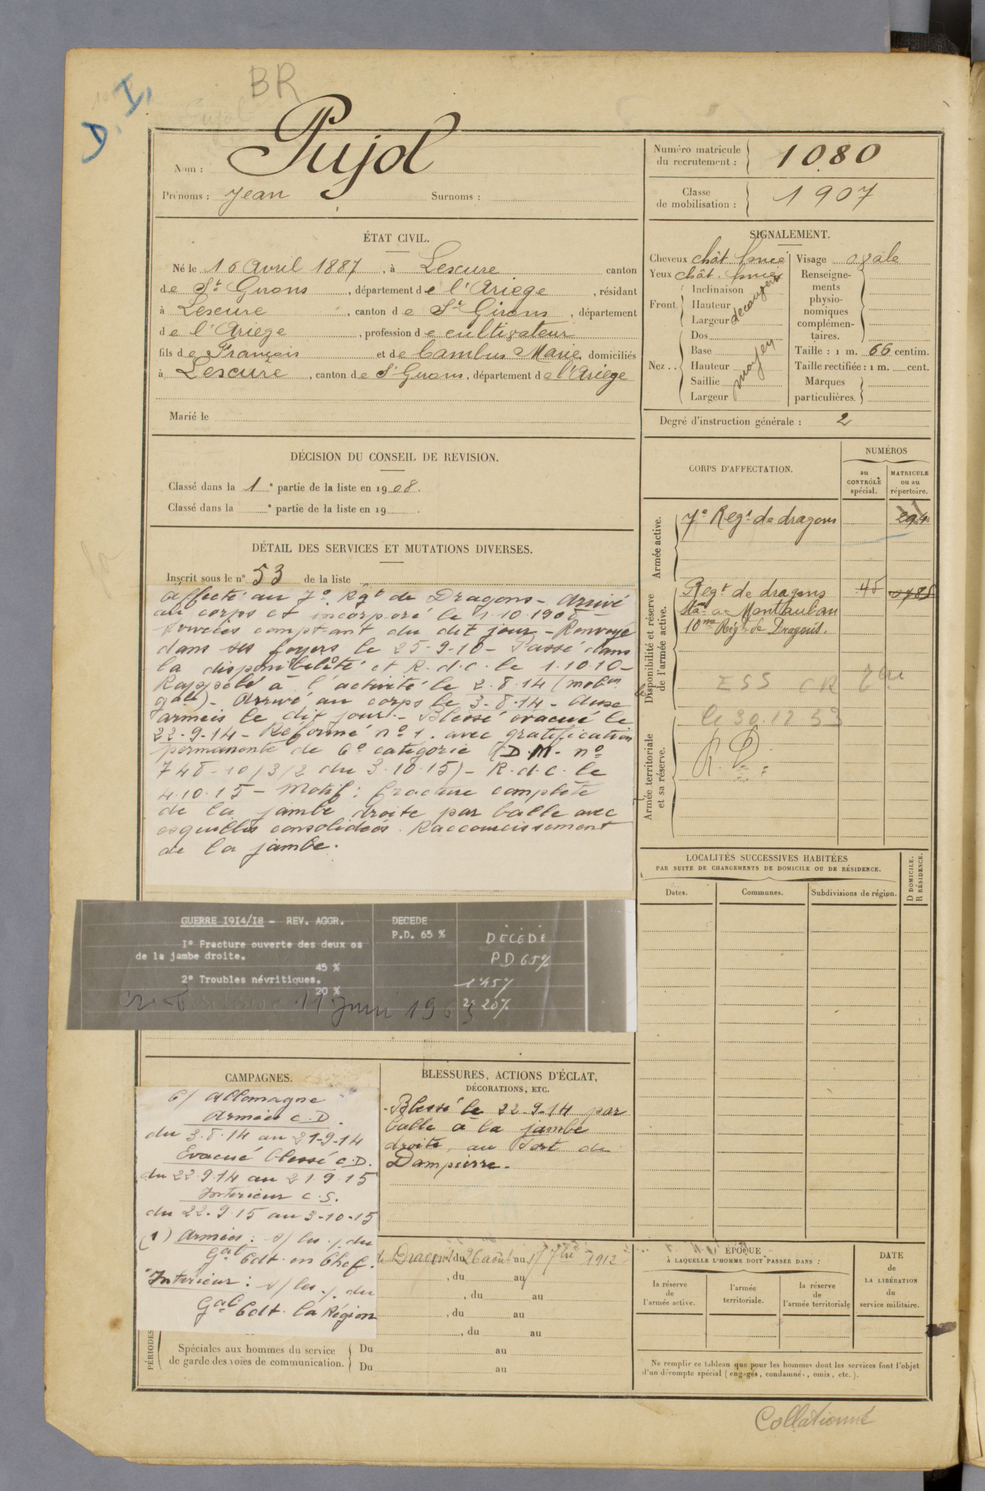 BR
D. I.
Nom : Pujol
Prénoms : Jean Surnoms :
Numéro matricule du recrutement : 1080
Classe de mobilisation : 1907
ÉTAT CIVIL.
Né le 16 Avril 1887, à Lescure canton
de St Girons, département de l'Ariege, résidant
à Lescure, canton de St Girons, département
de l'Ariege, profession de cultivateur
fils de François et de Cambus Marie, domiciliés
à Lescure, canton de St Girons, département de l'Ariege
Marié le
SIGNALEMENT.
Cheveux chât. foncé
Yeux chât. foncés
Front
Inclinaison
Hauteur
Largeur
Nez ..
Dos
Base
Hauteur
Saillie
Largeur
moyen
Visage ovale
Renseignements physionomiques complémentaires.
Taille : 1 m. 66 centim.
Taille rectifiée : 1 m. cent.
Marques particulières.
Degré d'instruction générale : 2
DÉCISION DU CONSEIL DE REVISION.
Classé dans la 1e partie de la liste en 1908.
Classé dans la e partie de la liste en 19
DÉTAIL DES SERVICES ET MUTATIONS DIVERSES.
Inscrit sous le n° 53 de la liste
affecté au 7e Rgt de Dragons - Arrivé
au corps et incorporé le 1.10.1908
comptant du dit jour - Renvoyé
dans ses foyers le 25-9-10 - Passé dans
la disponibilité et R.d.c. le 1.10.10 -
Rappelé à l'activité le 2.8.14 (mobon
gale) - Arrivé au corps le 3-8-14 - Aux
armées le dit jour - Blessé évacué le
22-9-14 - Réformé n° 1. avec gratification
permanente de 6e catégorie (D.M. n°
748-10/3/2 du 3-10-15) - R.d.c. le
4.10.15 - Motif : fracture complète
de la jambe droite par balle avec
esquilles consolidées. Raccourcissement
de la jambe.
CORPS D'AFFECTATION.
NUMÉROS
au CONTRÔLE spécial.
MATRICULE ou au répertoire.
Armée active.
7e Regt de dragons
Disponibilité et réserve de l'armée active.
Regt de dragons 48
Stat. de Montauban
10me Rég. de Dragons.
ESS CR
Armée territoriale et sa réserve.
le 30.12 53
R.D.
LOCALITÉS SUCCESSIVES HABITÉES
PAR SUITE DE CHANGEMENTS DE DOMICILE OU DE RÉSIDENCE.
Dates. Communes. Subdivisions de région.
D DOMICILE.
R RÉSIDENCE.
GUERRE 1914/18 - REV. AGGR.
1° Fracture ouverte des deux os
de la jambe droite.
45 %
2° Troubles névritiques.
20 %
DECEDE
P.D. 65 %
DÉCÉDÉ
PD 65%
1° 45%
2° 20%
11 Juin 1963
CAMPAGNES.
C/ Allemagne
Armées C.D.
du 3.8.14 au 21-9-14
Evacué blessé C.D.
du 22.9.14 au 21 9 15
Intérieur C.S.
du 22.9 15 au 3-10-15
(1) Armées : s/ les . du
Gal Cdt en Chef.
Intérieur : s/ les . du
Gal Cdt. la Région
BLESSURES, ACTIONS D'ÉCLAT,
DÉCORATIONS, ETC.
Blessé le 22.9.14 par
balle à la jambe
droite, au Fort de
Dampierre.
PÉRIODES
Dragons du 26 août au 1912
, du au
, du au
, du au
, du au
Spéciales aux hommes du service
de garde des voies de communication.
Du au
Du au
ÉPOQUE
À LAQUELLE L'HOMME DOIT PASSER DANS :
la réserve de l'armée active.
l'armée territoriale.
la réserve de l'armée territoriale
DATE
de
LA LIBÉRATION
du
service militaire.
Ne remplir ce tableau que pour les hommes dont les services font l'objet
d'un décompte spécial (engagés, condamnés, omis, etc.).
Collationné